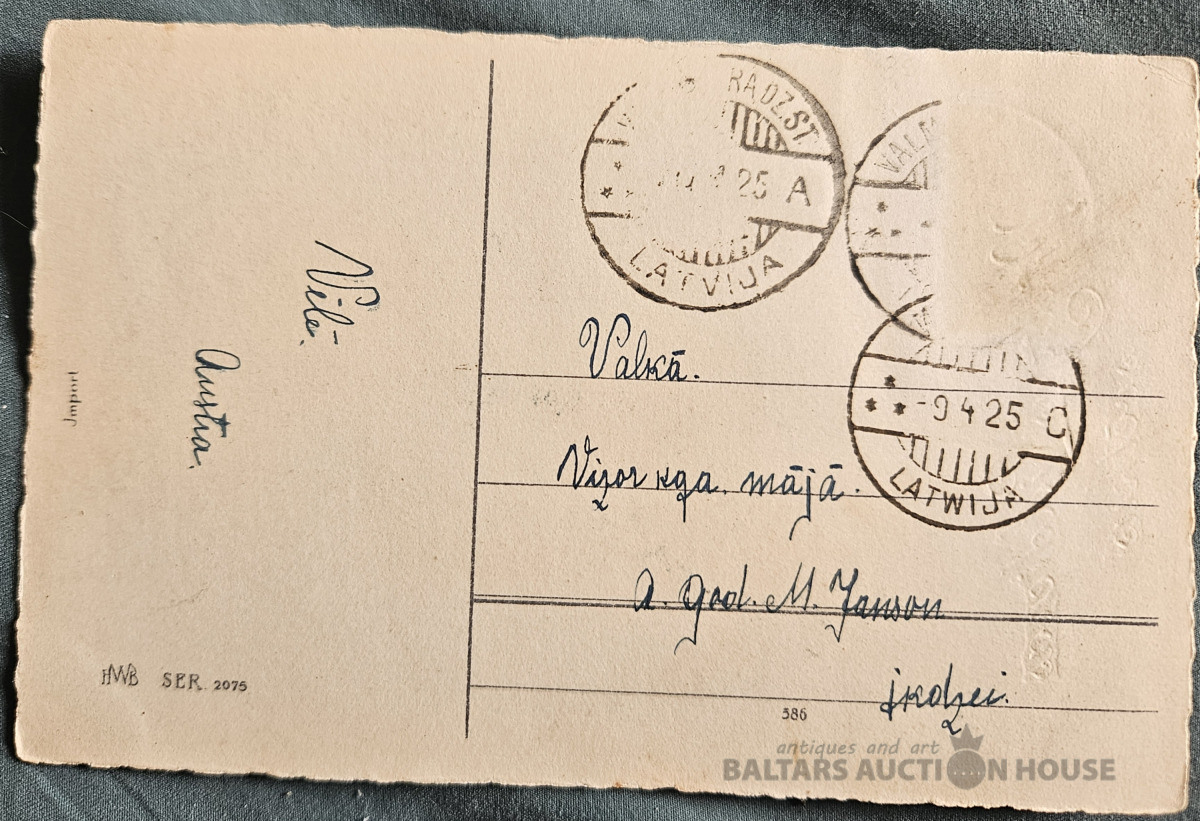 Vilē.
Austra.
Import
HWB SER. 2075
RADZST.
25 A
LATVIJA
VALM
-9 4 25 C
LATWIJA
Valkā.
kga. mājā.
A. god. M. Janson
jkdzei.
386
antiques and art
BALTARS AUCTION HOUSE